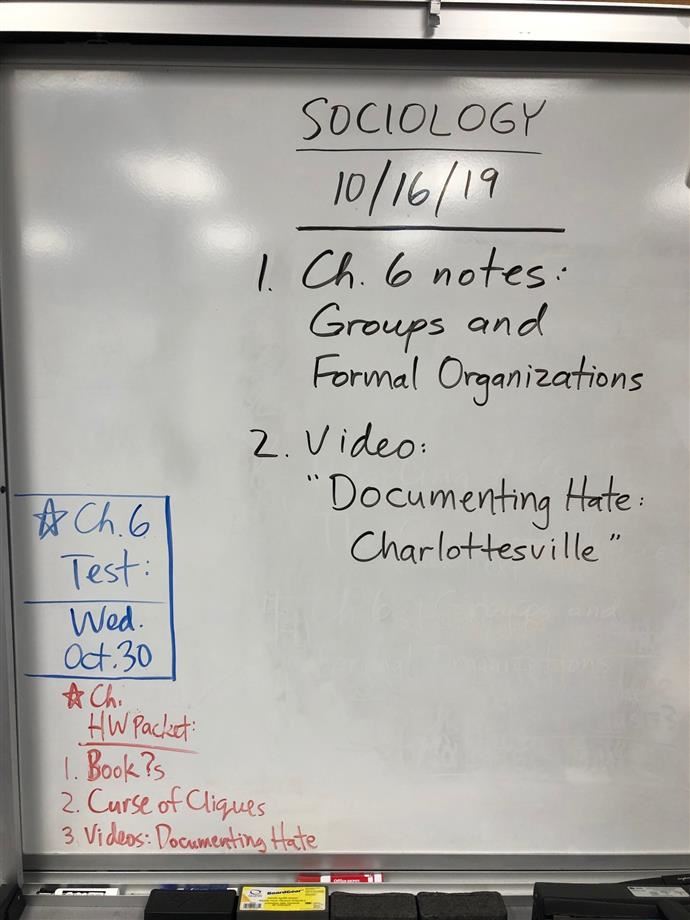 SOCIOLOGY
10/16/19
1. Ch. 6 notes:
Groups and
Formal Organizations
2. Video:
"Documenting Hate:
Charlottesville"
☆ Ch. 6
Test:
Wed.
Oct. 30
☆ Ch.
HW Packet:
1. Book ?s
2. Curse of Cliques
3. Videos: Documenting Hate
BoardGear